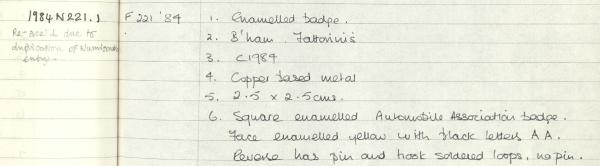 1984 N221.1
F221 '84
1. Enamelled badge.
Re-acc'd due to
duplication of Numismatic
entry.
2. B'ham. Fattorini's
3. c1984
4. Copper based metal
5. 2.5 x 2.5cms.
6. Square enamelled Automobile Association badge.
Face enamelled yellow with black letters A A.
Reverse has pin and hook soldered loops, no pin.